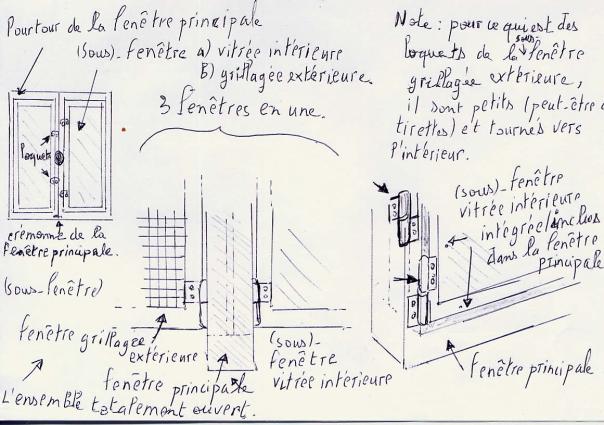 Pourtour de la fenêtre principale
(sous)-fenêtre a) vitrée intérieure
B) grillagée extérieure.
3 fenêtres en une.
loquets
crémone de la
fenêtre principale.
Note : pour ce qui est des
loquets de la (sous) fenêtre
grillagée extérieure,
il sont petits (peut-être
tirettes) et tournés vers
l'intérieur.
(sous)-fenêtre
vitrée intérieure
intégrée/inclus
dans la fenêtre
principale
(sous-fenêtre)
fenêtre grillagée
extérieure
fenêtre principale
(sous)-
fenêtre
vitrée intérieure
fenêtre principale
L'ensemble totalement ouvert.